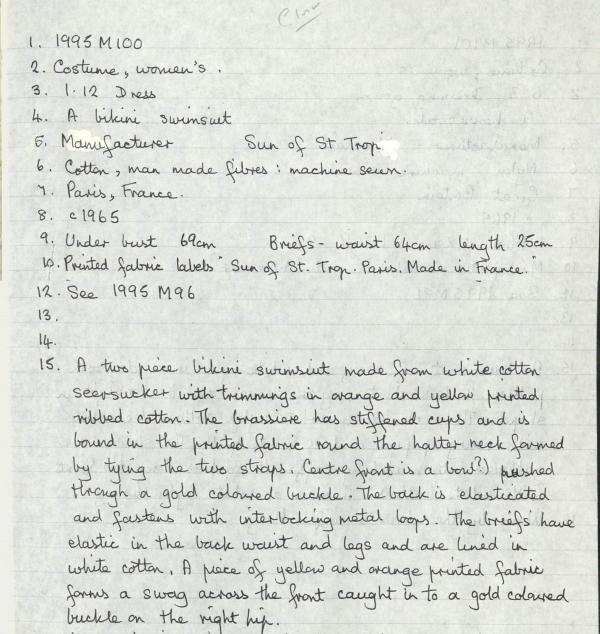 1. 1995 M100
2. Costume, women's.
3. 1.12 Dress
4. A bikini swimsuit
5. Manufacturer Sun of St Trop.
6. Cotton, man made fibres : machine sewn.
7. Paris, France.
8. c1965
9. Under bust 69cm Briefs - waist 64cm length 25cm
10. Printed fabric labels "Sun of St. Trop. Paris. Made in France."
12. See 1995 M96
13.
14.
15. A two piece bikini swimsuit made from white cotton
seersucker with trimmings in orange and yellow printed
ribbed cotton. The brassiere has stiffened cups and is
bound in the printed fabric round the halter neck formed
by tying the two straps. Centre front is a bow?) pushed
through a gold coloured buckle. The back is elasticated
and fastens with interlocking metal loops. The briefs have
elastic in the back waist and legs and are lined in
white cotton. A piece of yellow and orange printed fabric
forms a swag across the front caught in to a gold coloured
buckle on the right hip.